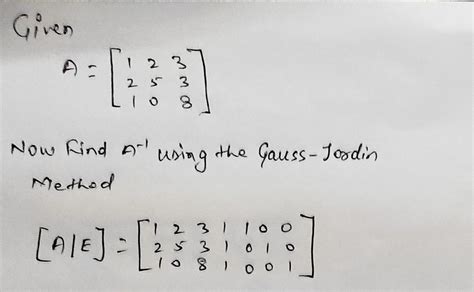 Given
A = [1 2 3
2 5 3
1 0 8]
Now Find A⁻¹ using the Gauss-Jordin
Method
[A|E] = [1 2 3 | 1 0 0
2 5 3 | 0 1 0
1 0 8 | 0 0 1]